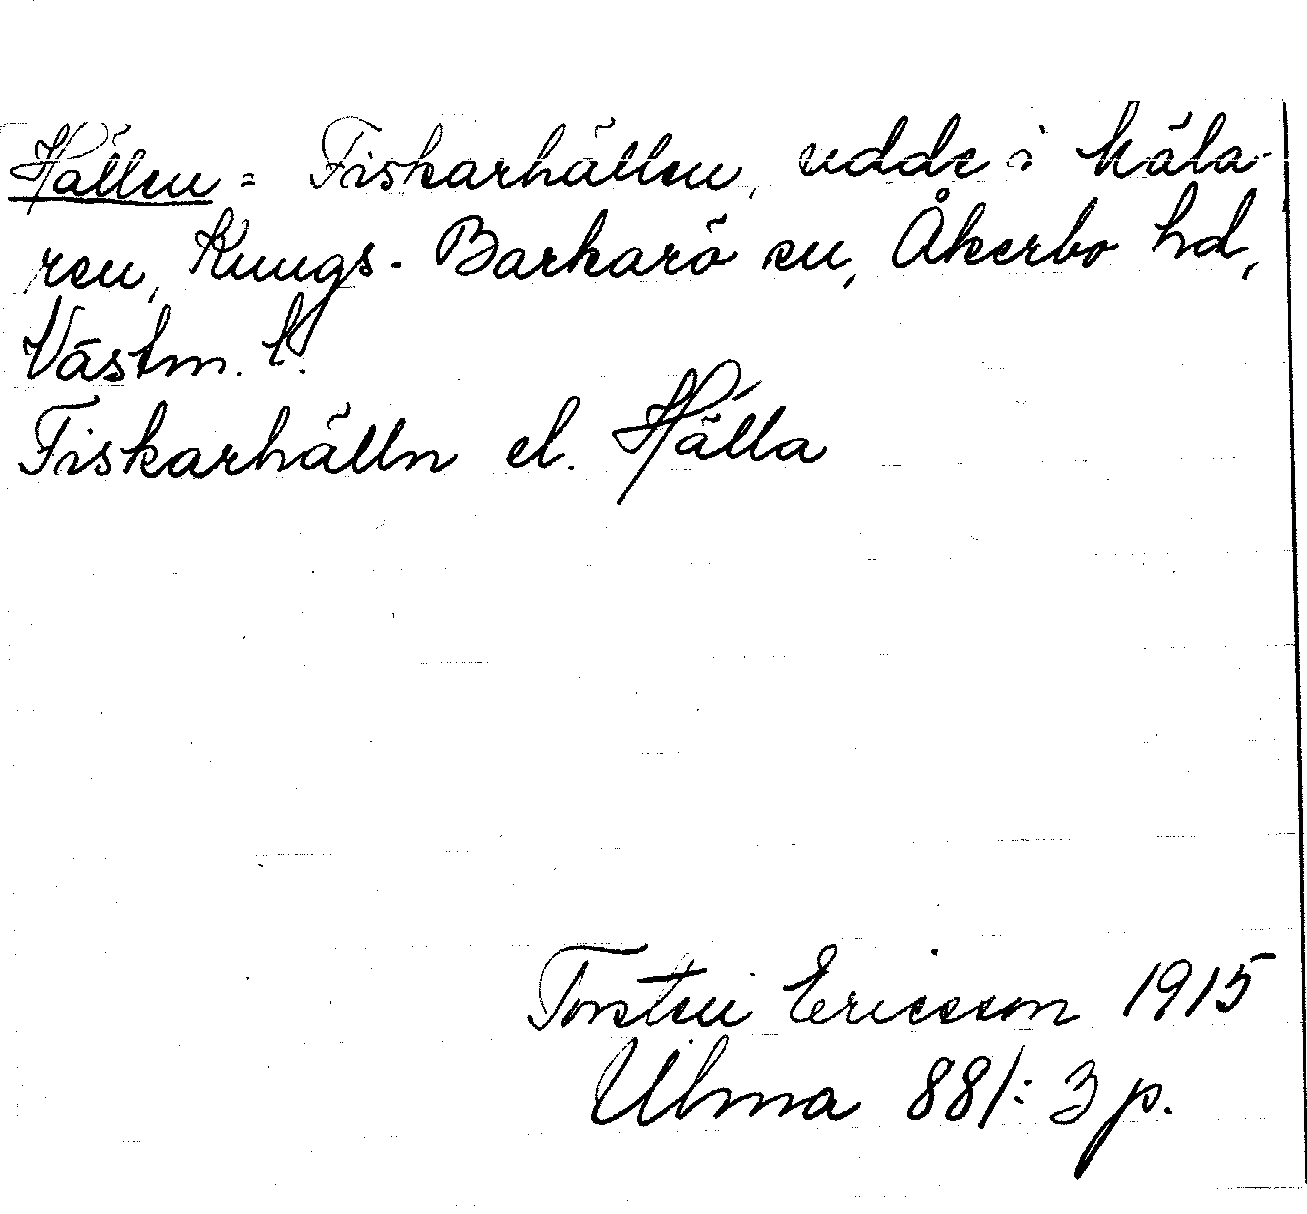 Hällen = Fiskarhällen, udde i Mäla-
ren, Kungs-Barkarö sn, Åkerbo hd,
Västm. l.
Fiskarhälln el. Hälla
Torsten Ericsson 1915
Ulma 88/: 3 p.